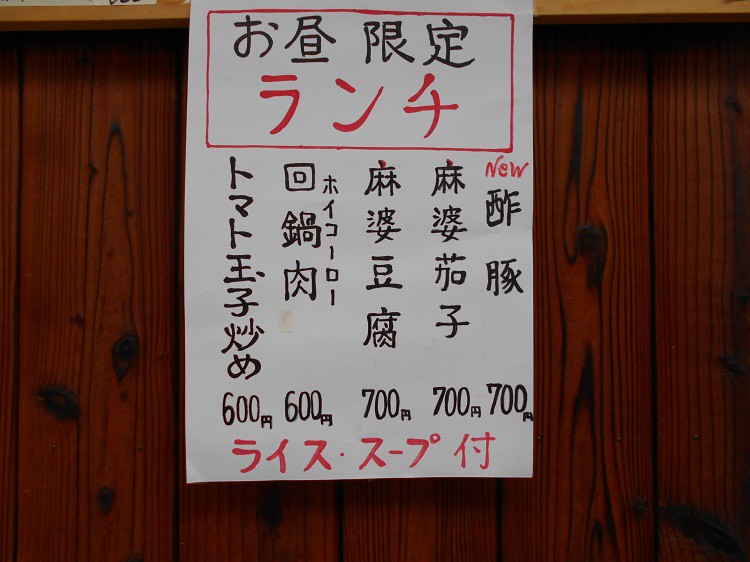 お昼限定
ランチ
New
酢豚 700円
麻婆茄子 700円
麻婆豆腐 700円
ホイコーロー
回鍋肉 600円
トマト玉子炒め 600円
ライス・スープ付